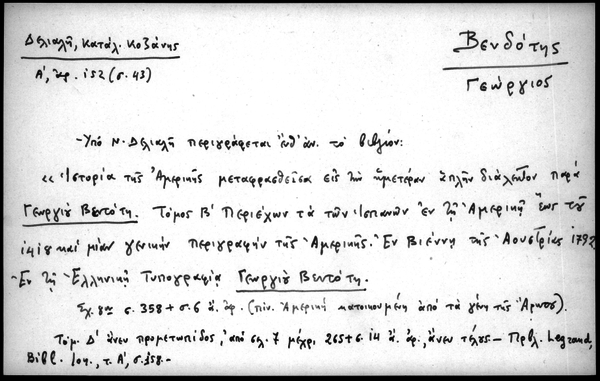 Δελιαλῆ, Κατάλ. Κοζάνης
Α', ἀρ. 152 (σ. 43)
Βενδότης
Γεώργιος
- Ὑπὸ Ν. Δελιαλῆ περιγράφεται ἐνθ' ἀν. τὸ βιβλίον:
«Ἱστορία τῆς Ἀμερικῆς μεταφρασθεῖσα εἰς τὴν ἡμετέραν ἁπλῆν διάλεκτον παρὰ
Γεωργίου Βεντότη. Τόμος Β' Περιέχων τὰ τῶν Ἱσπανῶν ἐν τῇ Ἀμερικῇ ἕως τοῦ
1418 καὶ μίαν γενικὴν περιγραφὴν τῆς Ἀμερικῆς. Ἐν Βιέννῃ τῆς Ἀουστρίας 1792
Ἐν τῇ Ἑλληνικῇ Τυπογραφίᾳ Γεωργίου Βεντότη.
Σχ. 8ον σ. 358 + σ. 6 ἄ. ἀρ. (πίν. Ἀμερικὴ κατοικουμένη ἀπὸ τὰ γένη τῆς).
Τόμ. Δ' ἄνευ προμετωπίδος, ἀπὸ σελ. 7 μέχρι 265 + σ. 14 ἄ. ἀρ., ἄνευ τέλους. - Πρβλ. Legrand,
Bibl. Ion., τ. Α', σ. 158. -